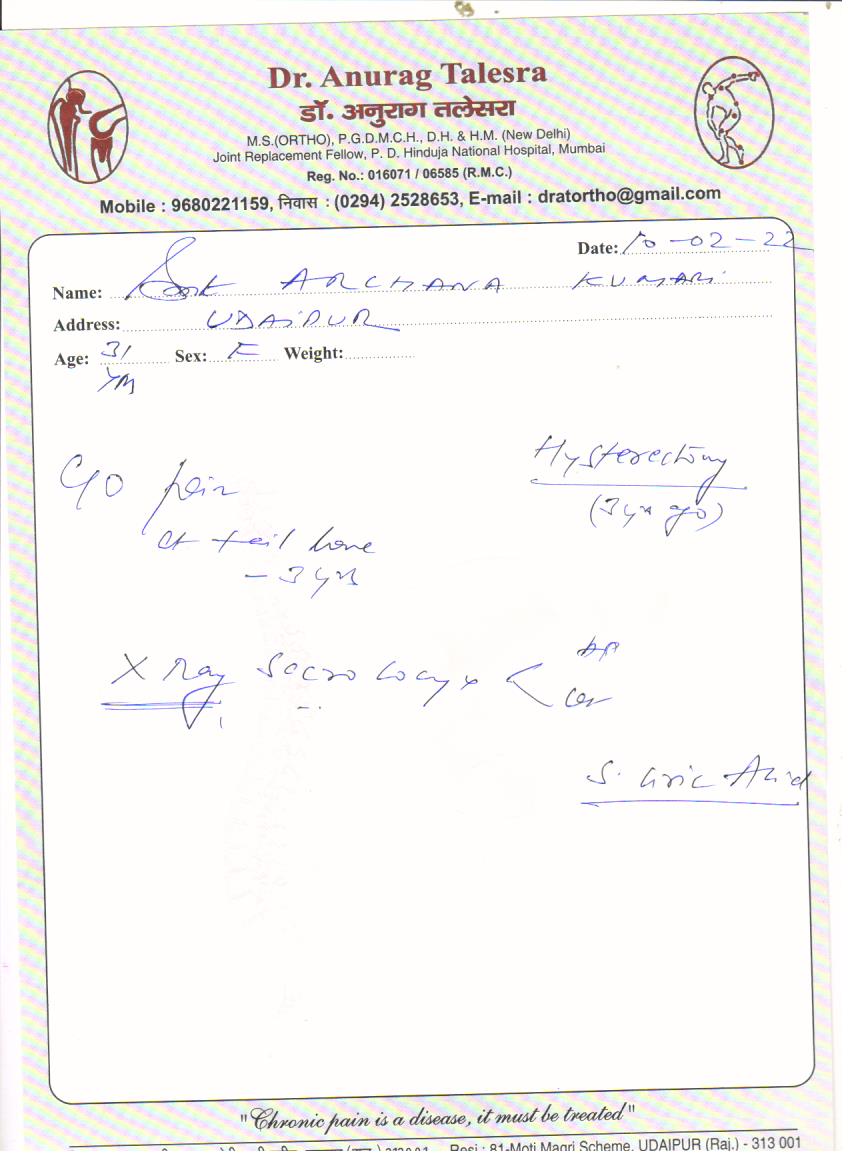 Dr. Anurag Talesra
डॉ. अनुराग तलेसरा
M.S.(ORTHO), P.G.D.M.C.H., D.H. & H.M. (New Delhi)
Joint Replacement Fellow, P. D. Hinduja National Hospital, Mumbai
Reg. No.: 016071 / 06585 (R.M.C.)
Mobile : 9680221159, निवास : (0294) 2528653, E-mail : dratortho@gmail.com
Date: 10-02-22
Name: Smt ARCHANA KUMARI
Address: UDAIPUR
Age: 31 Sex: F Weight:
yrs
Hysterectomy
(3 yrs ago)
C/o pain
at tail bone
- 3 yrs
X Ray Sacro Coccyx < AP
Lat
S. Uric Acid
"Chronic pain is a disease, it must be treated"
Resi : 81-Moti Magri Scheme, UDAIPUR (Raj.) - 313 001